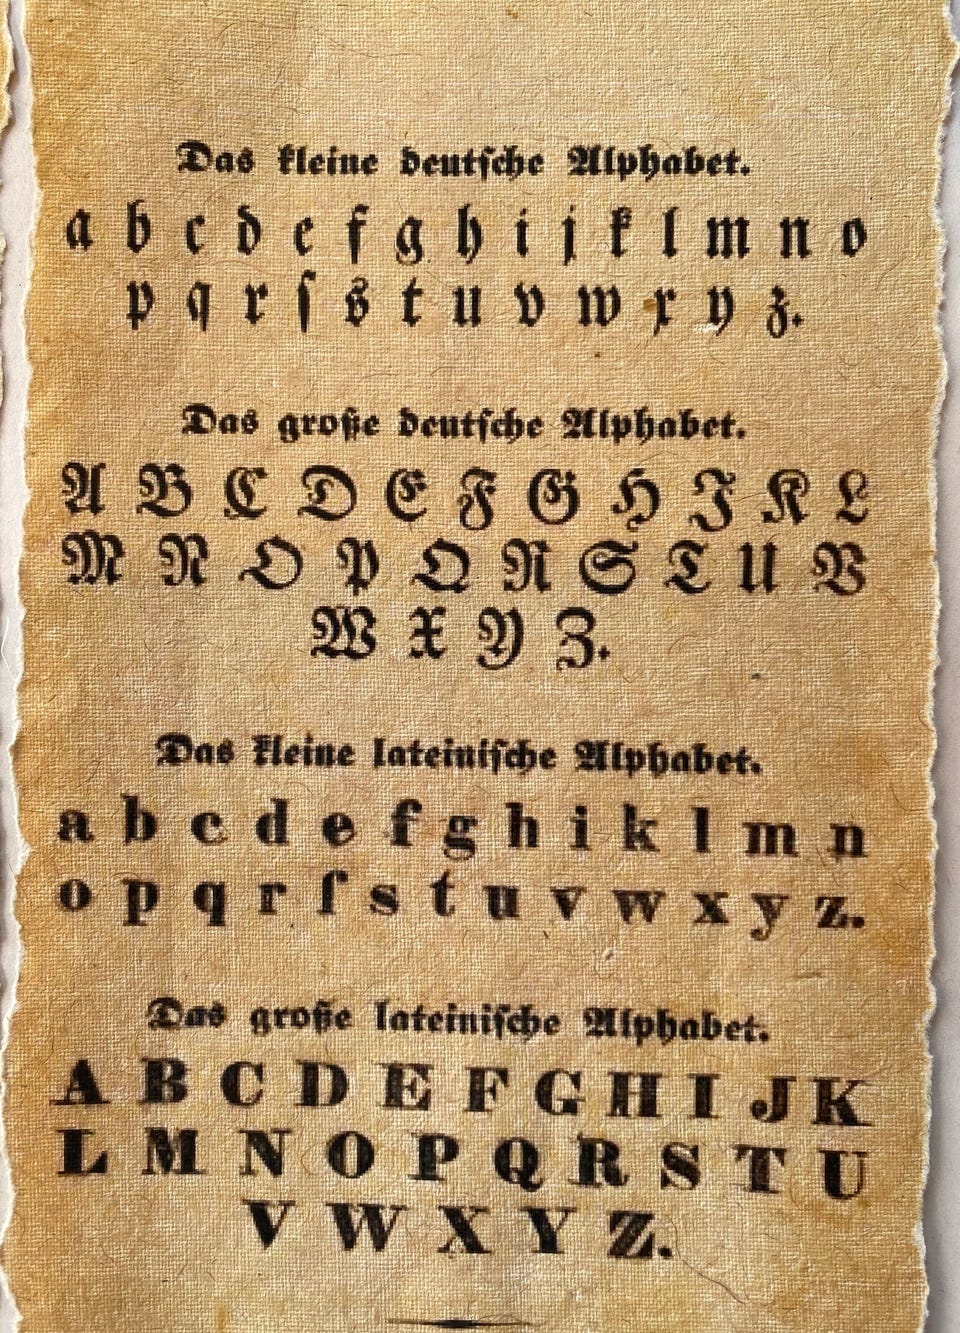 Das kleine deutſche Alphabet.
a b c d e f g h i j k l m n o
p q r ſ s t u v w x y z.
Das große deutſche Alphabet.
A B C D E F G H J K L
M N O P Q R S T U V
W X Y Z.
Das kleine lateiniſche Alphabet.
a b c d e f g h i k l m n
o p q r ſ s t u v w x y z.
Das große lateiniſche Alphabet.
A B C D E F G H I J K
L M N O P Q R S T U
V W X Y Z.